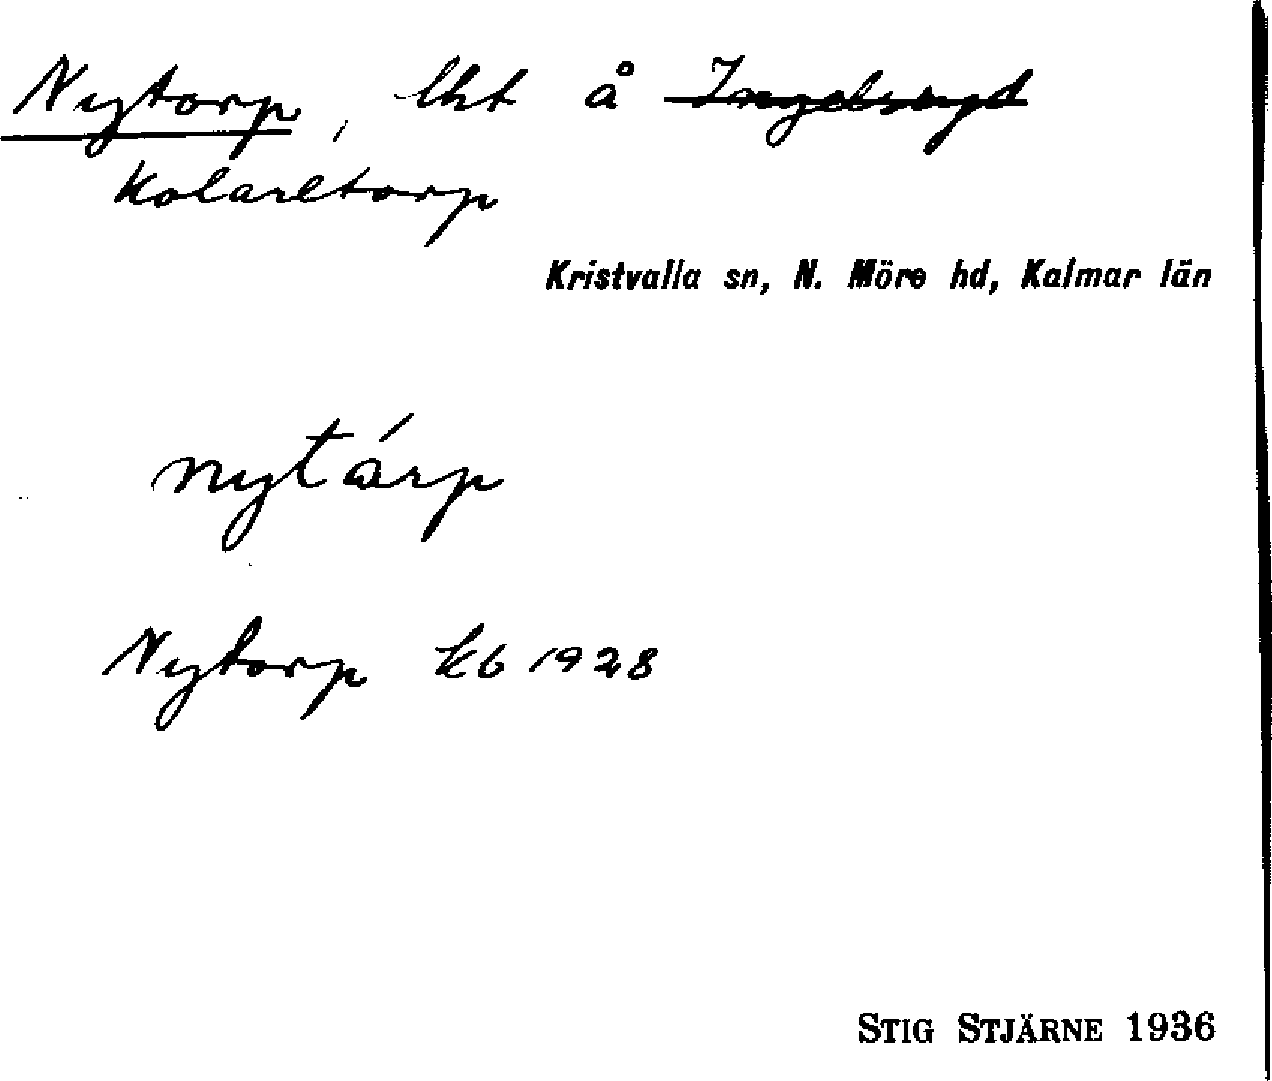 Nytorp, lht å ~~Ingelsryd~~
Kolaretorp
Kristvalla sn, N. Möre hd, Kalmar län
nytárp
Nytorp kb 1928
STIG STJÄRNE 1936